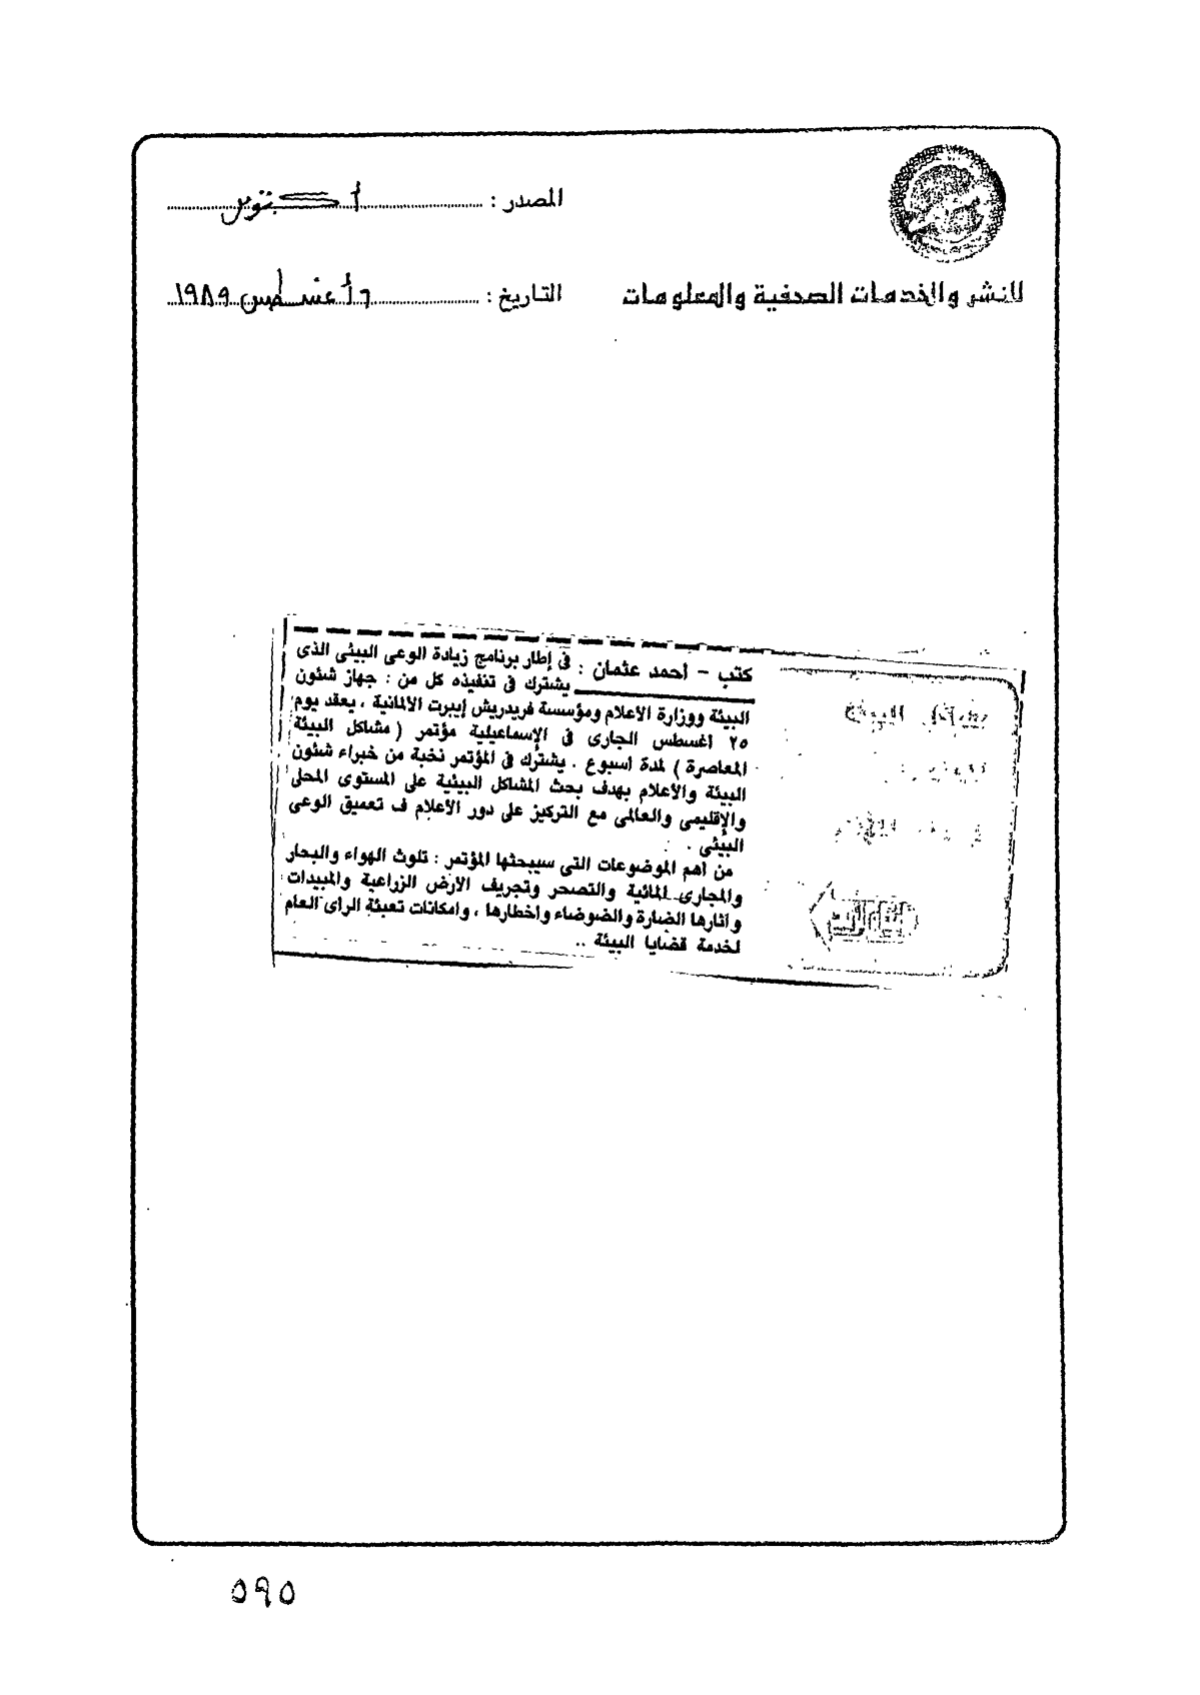 المصدر : أكتوبر
للنشر والخدمات الصحفية والمعلومات
التاريخ : ٦ أغسطس ١٩٨٩
كتب - أحمد عثمان : فى إطار برنامج زيادة الوعى البيئى الذى
يشترك فى تنفيذه كل من : جهاز شئون
البيئة ووزارة الأعلام ومؤسسة فريدريش إيبرت الالمانية ، يعقد يوم
٢٥ اغسطس الجارى فى الإسماعيلية مؤتمر ( مشاكل البيئة
المعاصرة ) لمدة اسبوع . يشترك فى المؤتمر نخبة من خبراء شئون
البيئة والأعلام بهدف بحث المشاكل البيئية على المستوى المحلى
والإقليمى والعالمى مع التركيز على دور الأعلام ف تعميق الوعى
البيئى .
من أهم الموضوعات التى سيبحثها المؤتمر : تلوث الهواء والبحار
والمجارى المائية والتصحر وتجريف الأرض الزراعية والمبيدات
واثارها الضارة والضوضاء واخطارها ، وامكانات تعبئة الراى العام
لخدمة قضايا البيئة ..
٥٩٥